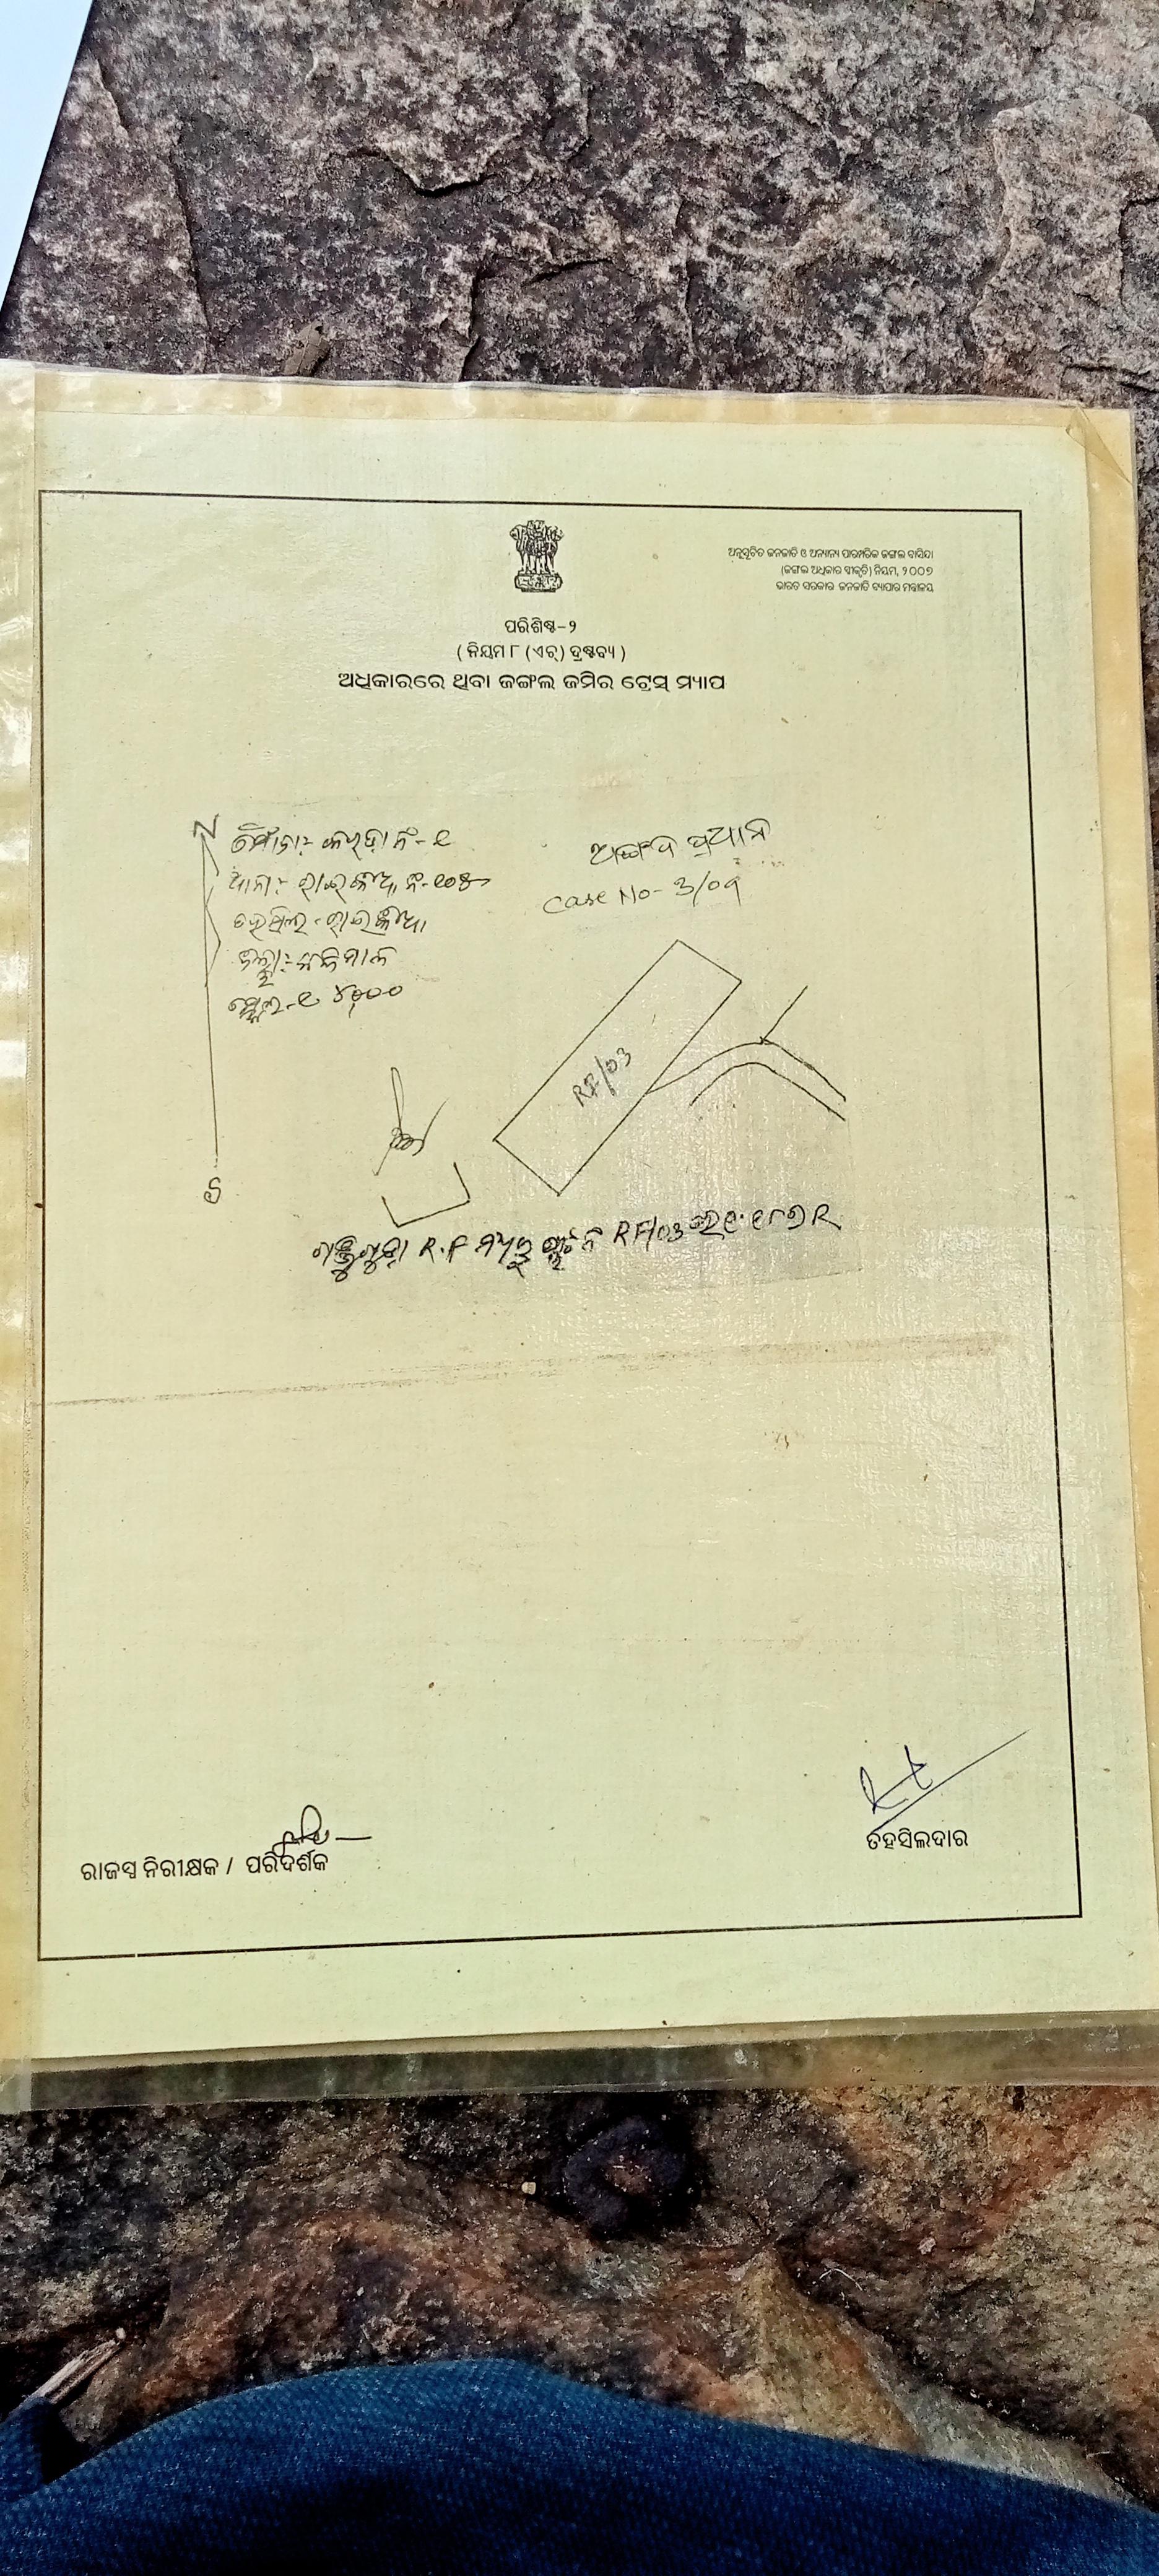 ଅନୁସୂଚିତ ଜନଜାତି ଓ ଅନ୍ୟାନ୍ୟ ପାରମ୍ପରିକ ଜଙ୍ଗଲ ବାସିନ୍ଦା
(ଜଙ୍ଗଲ ଅଧିକାର ସ୍ୱୀକୃତି) ନିୟମ, ୨୦୦୭
ଭାରତ ସରକାର ଜନଜାତି ବ୍ୟାପାର ମନ୍ତ୍ରାଳୟ
ପରିଶିଷ୍ଟ-୨
( ନିୟମ ୮ (ଏଚ୍) ଦ୍ରଷ୍ଟବ୍ୟ )
ଅଧିକାରରେ ଥିବା ଜଙ୍ଗଲ ଜମିର ଟ୍ରେସ୍ ମ୍ୟାପ
N
ମୌଜା:- ନଂ-୧
ଥାନା:- ରାଇକିଆ ନଂ-୧୦୫
ତହସିଲ- ରାଇକିଆ
ଜିଲ୍ଲା:- କନ୍ଧମାଳ
ସ୍କେଲ-୧ ୪୦୦୦
ପ୍ରଧାନ
Case No- 3/09
RF/03
S
R.F ମଧ୍ୟରୁ ପ୍ଲଟ ନଂ RF/03
ରାଜସ୍ୱ ନିରୀକ୍ଷକ / ପରିଦର୍ଶକ
ତହସିଲଦାର